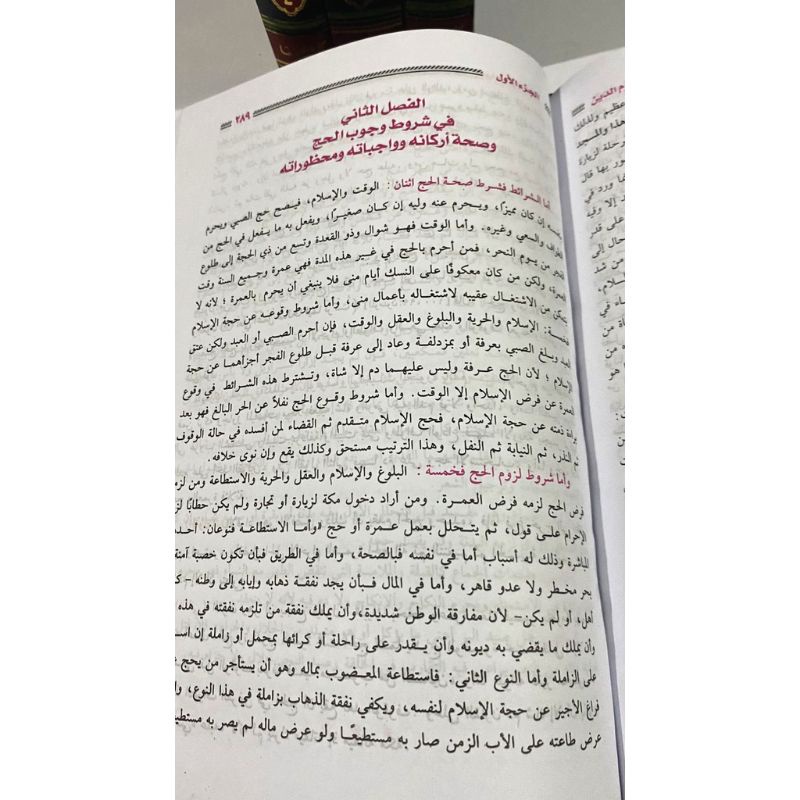 الجزء الأول
٢٨٩
الفصل الثاني
في شروط وجوب الحج
وصحة أركانه وواجباته ومحظوراته
أما الشرائط فشرط صحة الحج اثنان : الوقت والإسلام، فيصح حج الصبي ويحرم
بنفسه إن كان مميزًا، ويحرم عنه وليه إن كان صغيرًا، ويفعل به ما يفعل في الحج من
الطواف والسعي وغيره. وأما الوقت فهو شوال وذو القعدة وتسع من ذي الحجة إلى طلوع
الفجر من يوم النحر، فمن أحرم بالحج في غير هذه المدة فهي عمرة وجميع السنة وقت
العمرة، ولكن من كان معكوفًا على النسك أيام منى فلا ينبغي أن يحرم بالعمرة ؛ لأنه لا
يتمكن من الاشتغال عقيبه لاشتغاله بأعمال منى، وأما شروط وقوعه عن حجة الإسلام
فخمسة: الإسلام والحرية والبلوغ والعقل والوقت، فإن أحرم الصبي أو العبد ولكن عتق
العبد وبلغ الصبي بعرفة أو بمزدلفة وعاد إلى عرفة قبل طلوع الفجر أجزأهما عن حجة
الإسلام ؛ لأن الحج عرفة وليس عليهما دم إلا شاة، وتشترط هذه الشرائط في وقوع
العمرة عن فرض الإسلام إلا الوقت. وأما شروط وقوع الحج نفلاً عن الحر البالغ فهو بعد
براءة ذمته عن حجة الإسلام، فحج الإسلام متقدم ثم القضاء لمن أفسده في حالة الوقوف
ثم النذر، ثم النيابة ثم النفل، وهذا الترتيب مستحق وكذلك يقع وإن نوى خلافه.
وأما شروط لزوم الحج فخمسة : البلوغ والإسلام والعقل والحرية والاستطاعة ومن لزمه
فرض الحج لزمه فرض العمرة. ومن أراد دخول مكة لزيارة أو تجارة ولم يكن حطابًا لزمه
الإحرام على قول، ثم يتحلل بعمل عمرة أو حج «وأما الاستطاعة فنوعان: أحدهما
المباشرة وذلك له أسباب أما في نفسه فبالصحة، وأما في الطريق فبأن تكون خصبة آمنة
بحر مخطر ولا عدو قاهر، وأما في المال فبأن يجد نفقة ذهابه وإيابه إلى وطنه –
أهل، أو لم يكن– لأن مفارقة الوطن شديدة، وأن يملك نفقة من تلزمه نفقته في هذه
وأن يملك ما يقضي به ديونه وأن يقدر على راحلة أو كرائها بمحمل أو زاملة إن
على الزاملة وأما النوع الثاني: فاستطاعة المعضوب بماله وهو أن يستأجر من يحج
فراغ الأجير عن حجة الإسلام لنفسه، ويكفي نفقة الذهاب بزاملة في هذا النوع،
عرض طاعته على الأب الزمن صار به مستطيعًا ولو عرض ماله لم يصر به